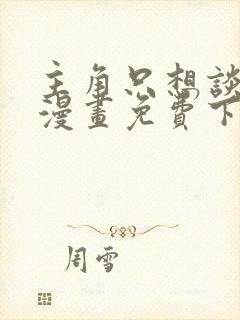 主角只想談
漫畫免費下
周雪